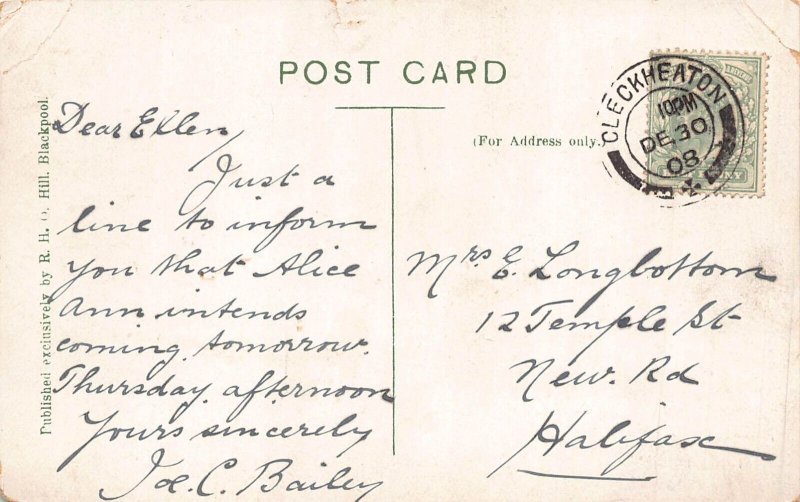 POST CARD
(For Address only.)
CLECKHEATON
10PM
DE 30
08
Dear Ellen
Just a
line to inform
you that Alice
Ann intends
coming tomorrow.
Thursday afternoon
Yours sincerely
Joe. C. Bailey
Mrs E. Longbottom
12 Temple St
New. Rd
Halifax
Published exclusively by R. H. O. Hill, Blackpool.